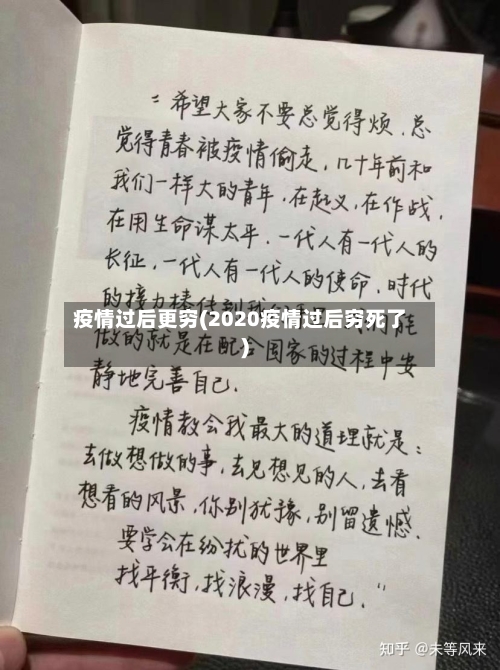 “希望大家不要总觉得烦,总
觉得青春被疫情偷走,几十年前和
我们一样大的青年,在起义,在作战,
在用生命谋太平.一代人有一代人的
长征,一代人有一代人的使命,时代
的接力棒
疫情过后更穷(2020疫情过后穷死了
)
做的就是在配合国家的过程中安
静地完善自己.
疫情教会我最大的道理就是:
去做想做的事,去见想见的人,去看
想看的风景,你别犹豫,别留遗憾.
要学会在纷扰的世界里
找平衡,找浪漫,找自己.”
知乎 @未等风来